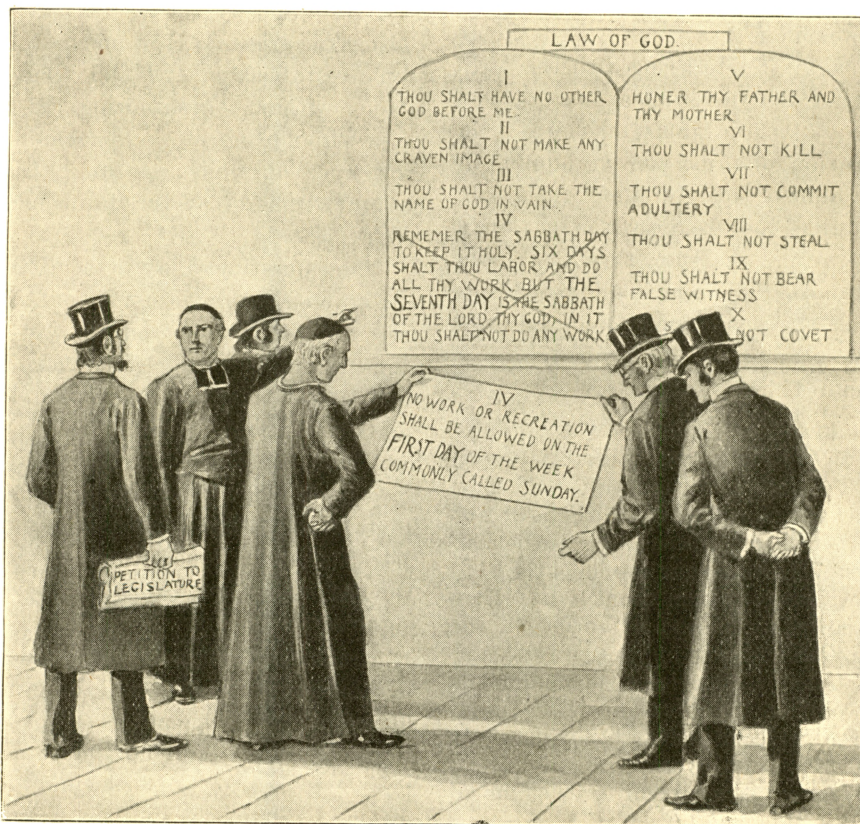 LAW OF GOD.
I
THOU SHALT HAVE NO OTHER
GOD BEFORE ME.
II
THOU SHALT NOT MAKE ANY
CRAVEN IMAGE
III
THOU SHALT NOT TAKE THE
NAME OF GOD IN VAIN.
IV
REMEMER THE SABBATH DAY
TO KEEP IT HOLY. SIX DAYS
SHALT THOU LABOR AND DO
ALL THY WORK BUT THE
SEVENTH DAY IS THE SABBATH
OF THE LORD THY GOD, IN IT
THOU SHALT NOT DO ANY WORK
V
HONER THY FATHER AND
THY MOTHER
VI
THOU SHALT NOT KILL
VII
THOU SHALT NOT COMMIT
ADULTERY
VIII
THOU SHALT NOT STEAL
IX
THOU SHALT NOT BEAR
FALSE WITNESS
X
NOT COVET
IV
NO WORK OR RECREATION
SHALL BE ALLOWED ON THE
FIRST DAY OF THE WEEK
COMMONLY CALLED SUNDAY.
PETITION TO
LEGISLATURE